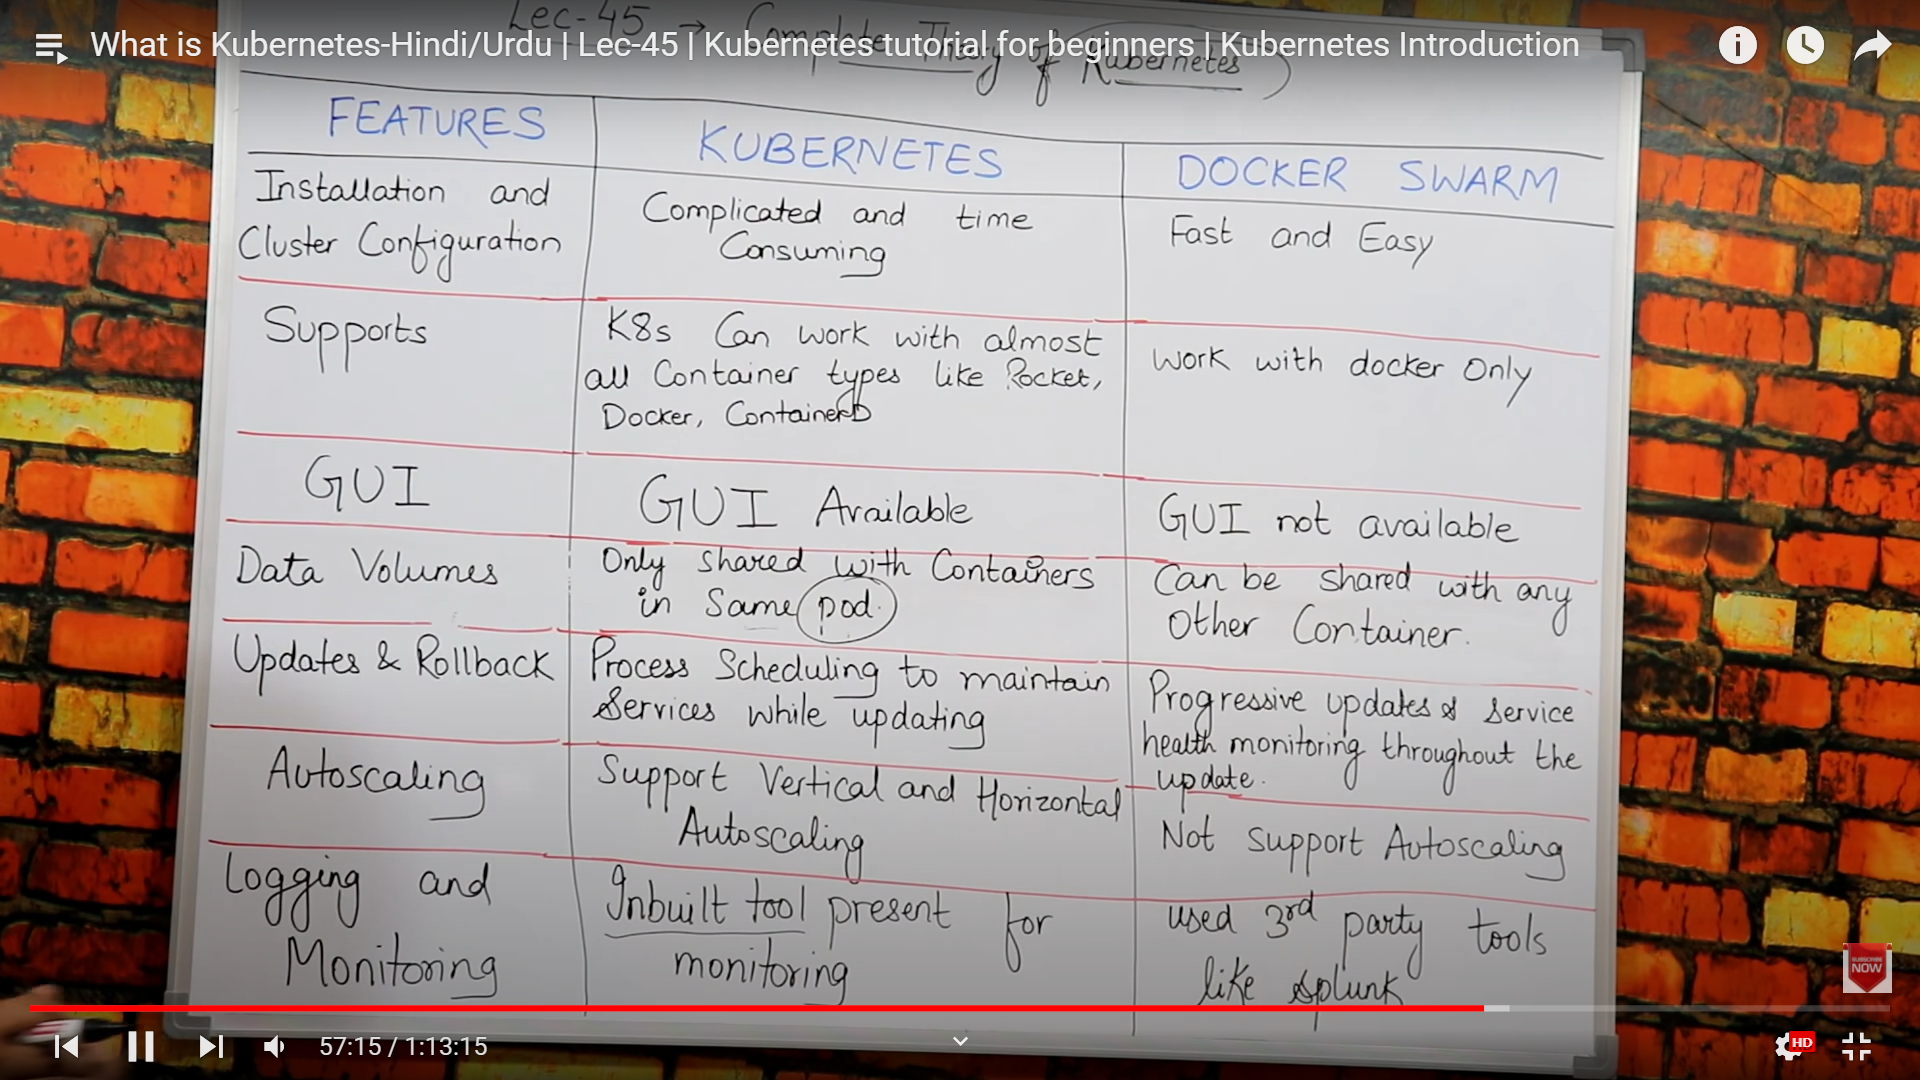 Lec-45 → Complete Theory of Kubernetes)
What is Kubernetes-Hindi/Urdu | Lec-45 | Kubernetes tutorial for beginners | Kubernetes Introduction
FEATURES
KUBERNETES
DOCKER SWARM
Installation and
Cluster Configuration
Complicated and time
Consuming
Fast and Easy
Supports
K8s Can work with almost
all Container types like Rocket,
Docker, ContainerD
Work with docker Only
GUI
GUI Available
GUI not available
Data Volumes
Only shared with Containers
in Same pod.
Can be shared with any
Other Container.
Updates & Rollback
Process Scheduling to maintain
Services while updating
Progressive updates & Service
health monitoring throughout the
update.
Autoscaling
Support Vertical and Horizontal
Autoscaling
Not support Autoscaling
Logging and
Monitoring
Inbuilt tool present for
monitoring
used 3rd party tools
like splunk
SUBSCRIBE
NOW
57:15 / 1:13:15
HD